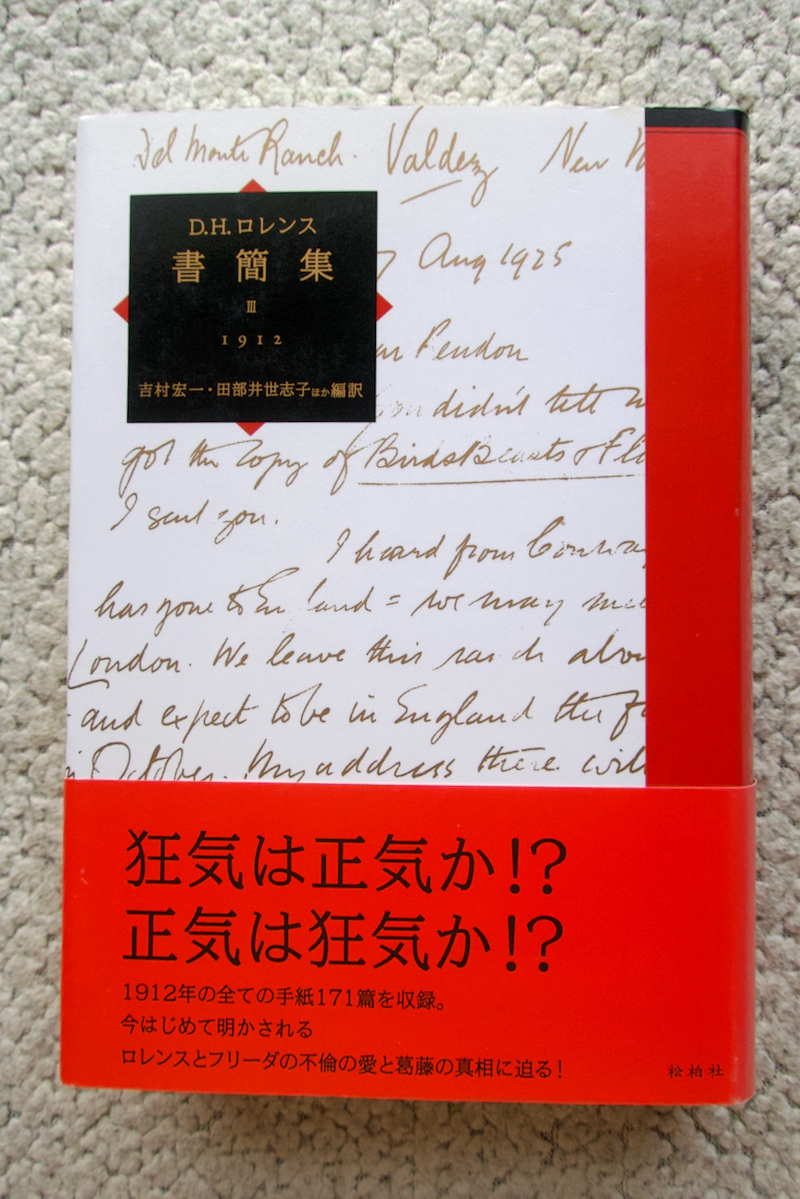 Del Monte Ranch. Valdez New M
7 Aug 1925
D.H.ロレンス
書簡集
III
1912
吉村宏一・田部井世志子ほか編訳
ar Pendon
you didn't tell
got the copy of Birds Beasts & Fl
I sent you.
I heard from Conway
has gone to England = we may
London. We leave this ranch abou
and expect to be in England the fi
in October. My address there will
狂気は正気か!?
正気は狂気か!?
1912年の全ての手紙171篇を収録。
今はじめて明かされる
ロレンスとフリーダの不倫の愛と葛藤の真相に迫る!
松柏社